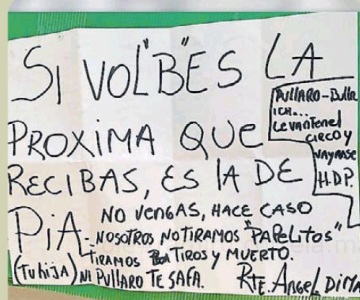 SI VOL"B"ES LA
PROXIMA QUE
RECIBAS, ES lA DE
PIA.
(Tu hija)
PULLARO-Dulla
ICH...
LEVANTEN el
CIRCO y
VAYANSE
H.D.P.
NO VENGAS, HACE CASO
NOSOTROS NO TIRAMOS "PAPELITOS"
TIRAMOS TIROS y MUERTO.
NI PULLARO TE SAFA.
RTE. ANGEL DIMA